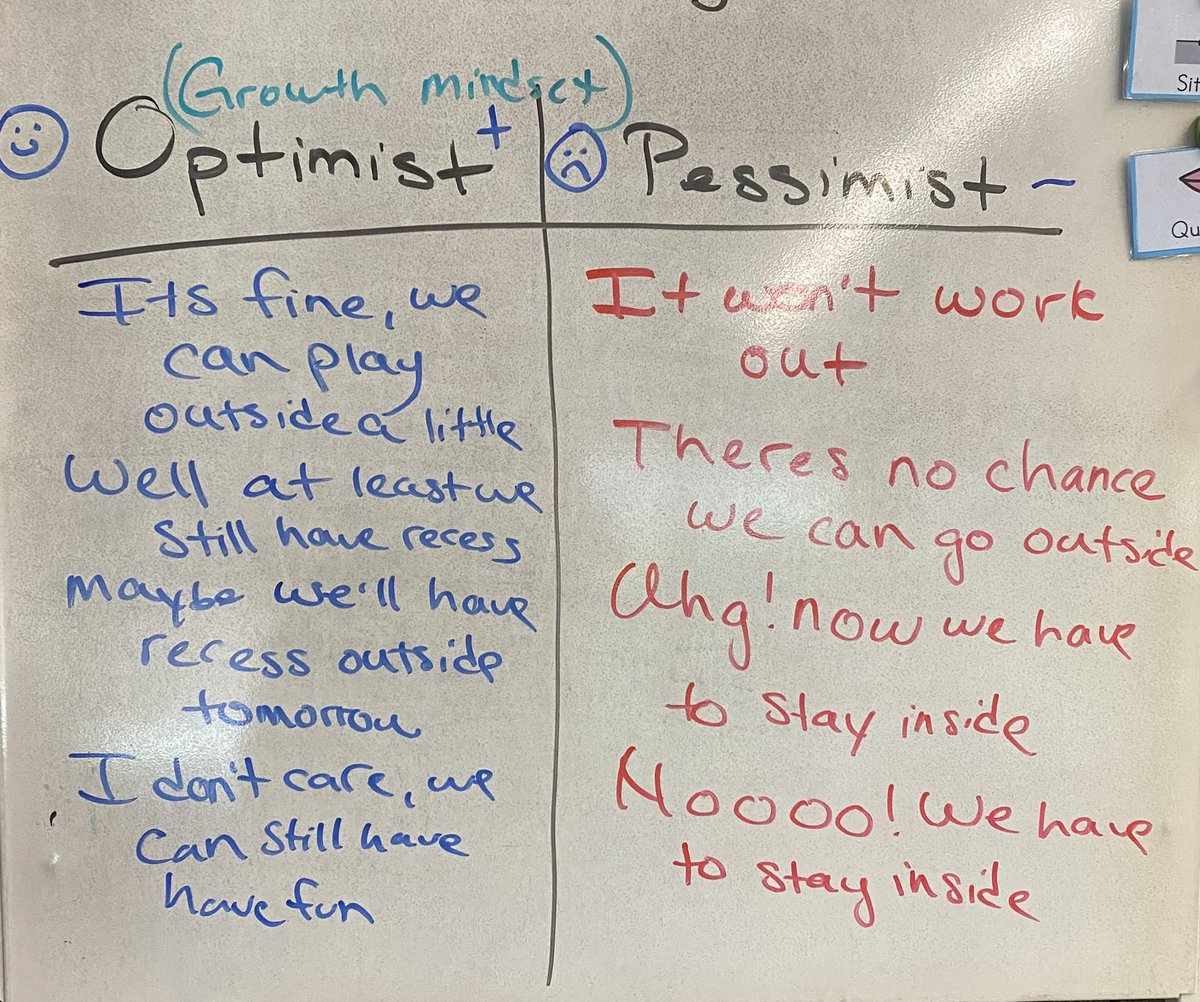 (Growth mindset)
Optimist +
Its fine, we
can play
outside a little
Well at least we
still have recess
Maybe we'll have
recess outside
tomorrow
I don't care, we
can still have
have fun
Pessimist -
It won't work
out
Theres no chance
we can go outside
Ahg! now we have
to stay inside
Noooo! We have
to stay inside
Sit
Qu